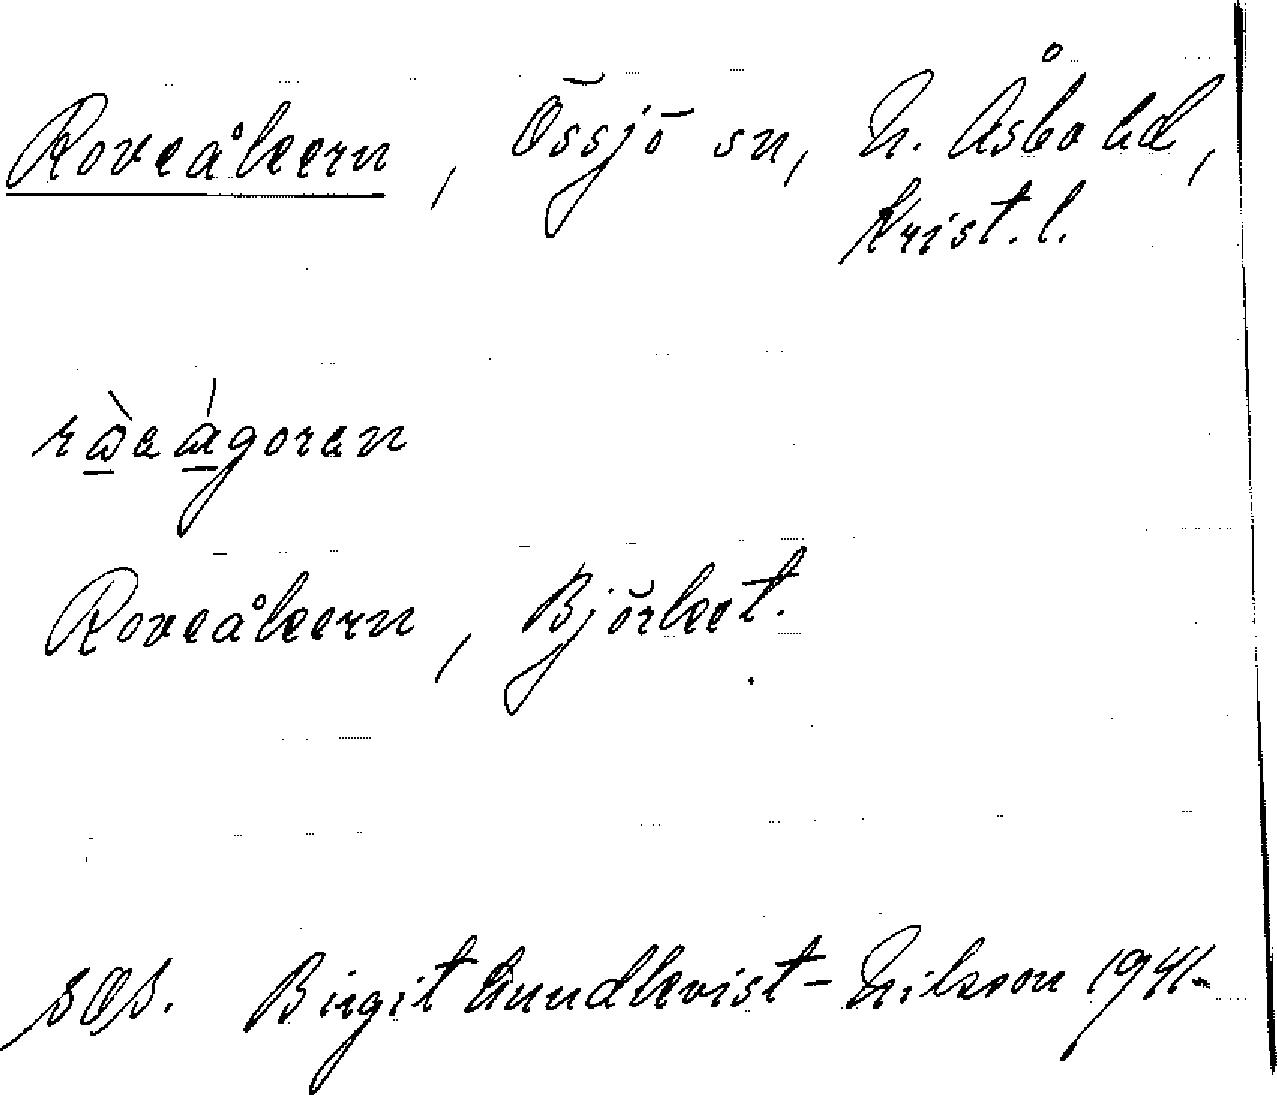 Roveåkern, Össjö sn, N. Åsbo hd,
Krist. l.
ròeágoran
Roveåkern, Björket.
SOS. Birgit Lundkvist-Nilsson 1941